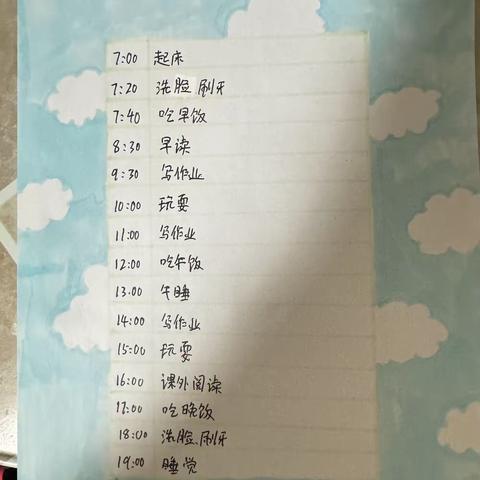 7:00 起床
7:20 洗脸 刷牙
7:40 吃早饭
8:30 早读
9:30 写作业
10:00 玩耍
11:00 写作业
12:00 吃午饭
13.00 午睡
14:00 写作业
15:00 玩耍
16:00 课外阅读
17:00 吃晚饭
18:00 洗脸、刷牙
19:00 睡觉